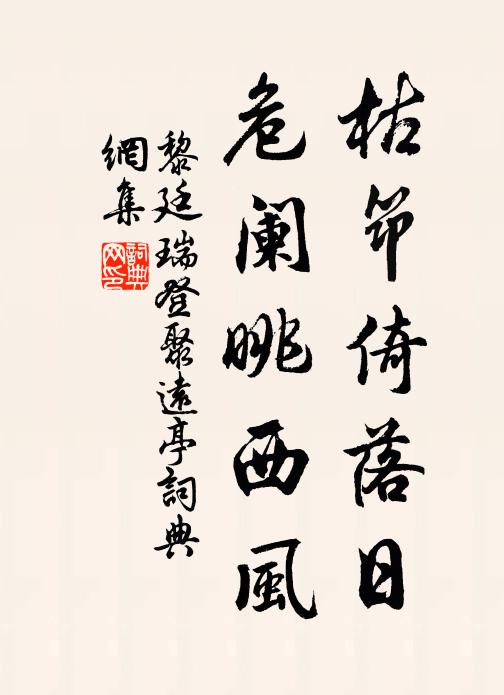 枯筇倚落日
危阑眺西風
黎廷瑞登聚遠亭詞典
網集
詞典
网印